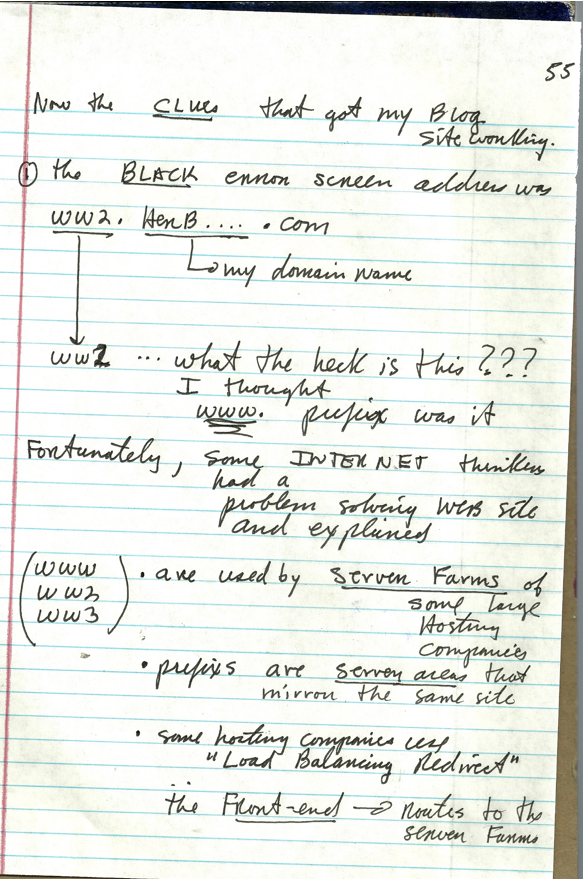 55
Now the CLUES that got my Blog
site working.
① the BLACK error screen address was
WW2. HerB.... .com
my domain name
WW2 ... what the heck is this ???
I thought
www. prefix was it
Fortunately, some INTERNET thinker
had a
problem solving WEB site
and explined
(WWW
WW2
WW3)
• are used by Server Farms of
some large
Hosting
Companies
• prefixs are server areas that
mirror the same site
• some hosting companies use
"Load Balancing Redirect"
the Front-end → routes to the
server Farms